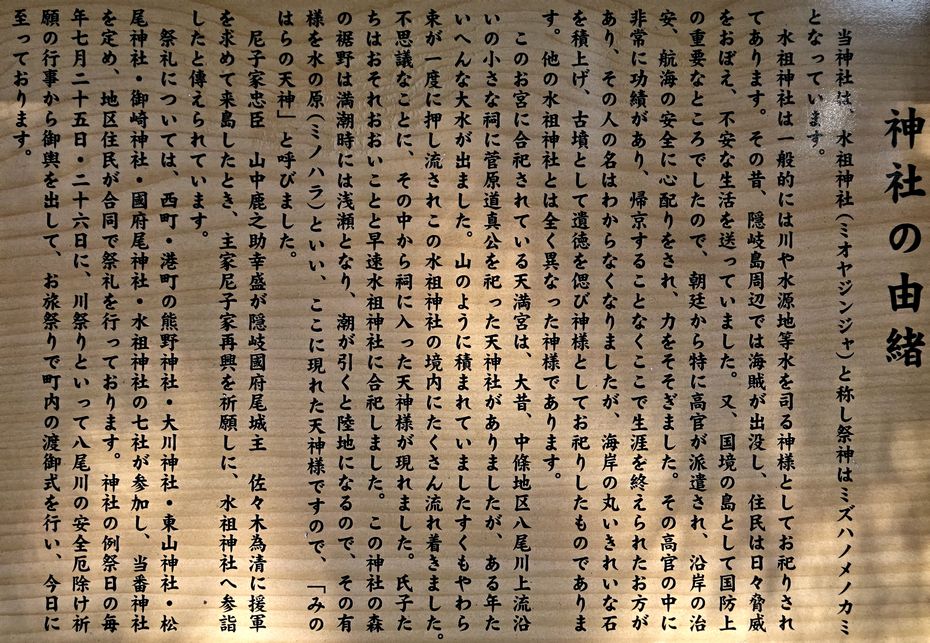 神社の由緒
当神社は、水祖神社(ミオヤジンジャ)と称し祭神はミズハノメノカミ
となっています。
水祖神社は一般的には川や水源地等水を司る神様としてお祀りされ
てあります。その昔、隠岐島周辺では海賊が出没し、住民は日々脅威
をおぼえ、不安な生活を送っていました。又、国境の島として国防上
の重要なところでしたので、朝廷から特に高官が派遣され、沿岸の治
安、航海の安全に心配りをされ、力をそそぎました。その高官の中に
非常に功績があり、帰京することなくここで生涯を終えられたお方が
あり、その人の名はわからなくなりましたが、海岸の丸いきれいな石
を積上げ、古墳として遺徳を偲び神様としてお祀りしたものでありま
す。他の水祖神社とは全く異なった神様であります。
このお宮に合祀されている天満宮は、大昔、中條地区八尾川上流沿
いの小さな祠に菅原道真公を祀った天神社がありましたが、ある年た
いへんな大水が出ました。山のように積まれていましたすくもやわら
束が一度に押し流されこの水祖神社の境内にたくさん流れ着きました。
不思議なことに、その中から祠に入った天神様が現れました。氏子た
ちはおそれおおいことと早速水祖神社に合祀しました。この神社の森
の裾野は満潮時には浅瀬となり、潮が引くと陸地になるので、その有
様を水の原(ミノハラ)といい、ここに現れた天神様ですので、「みの
はらの天神」と呼びました。
尼子家忠臣 山中鹿之助幸盛が隠岐國府尾城主 佐々木為清に援軍
を求めて来島したとき、主家尼子家再興を祈願しに、水祖神社へ参詣
したと傳えられています。
祭礼については、西町・港町の熊野神社・大川神社・東山神社・松
尾神社・御崎神社・國府尾神社・水祖神社の七社が参加し、当番神社
を定め、地区住民が合同で祭礼を行っております。神社の例祭日の毎
年七月二十五日・二十六日に、川祭りといって八尾川の安全厄除け祈
願の行事から御輿を出して、お旅祭りで町内の渡御式を行い、今日に
至っております。